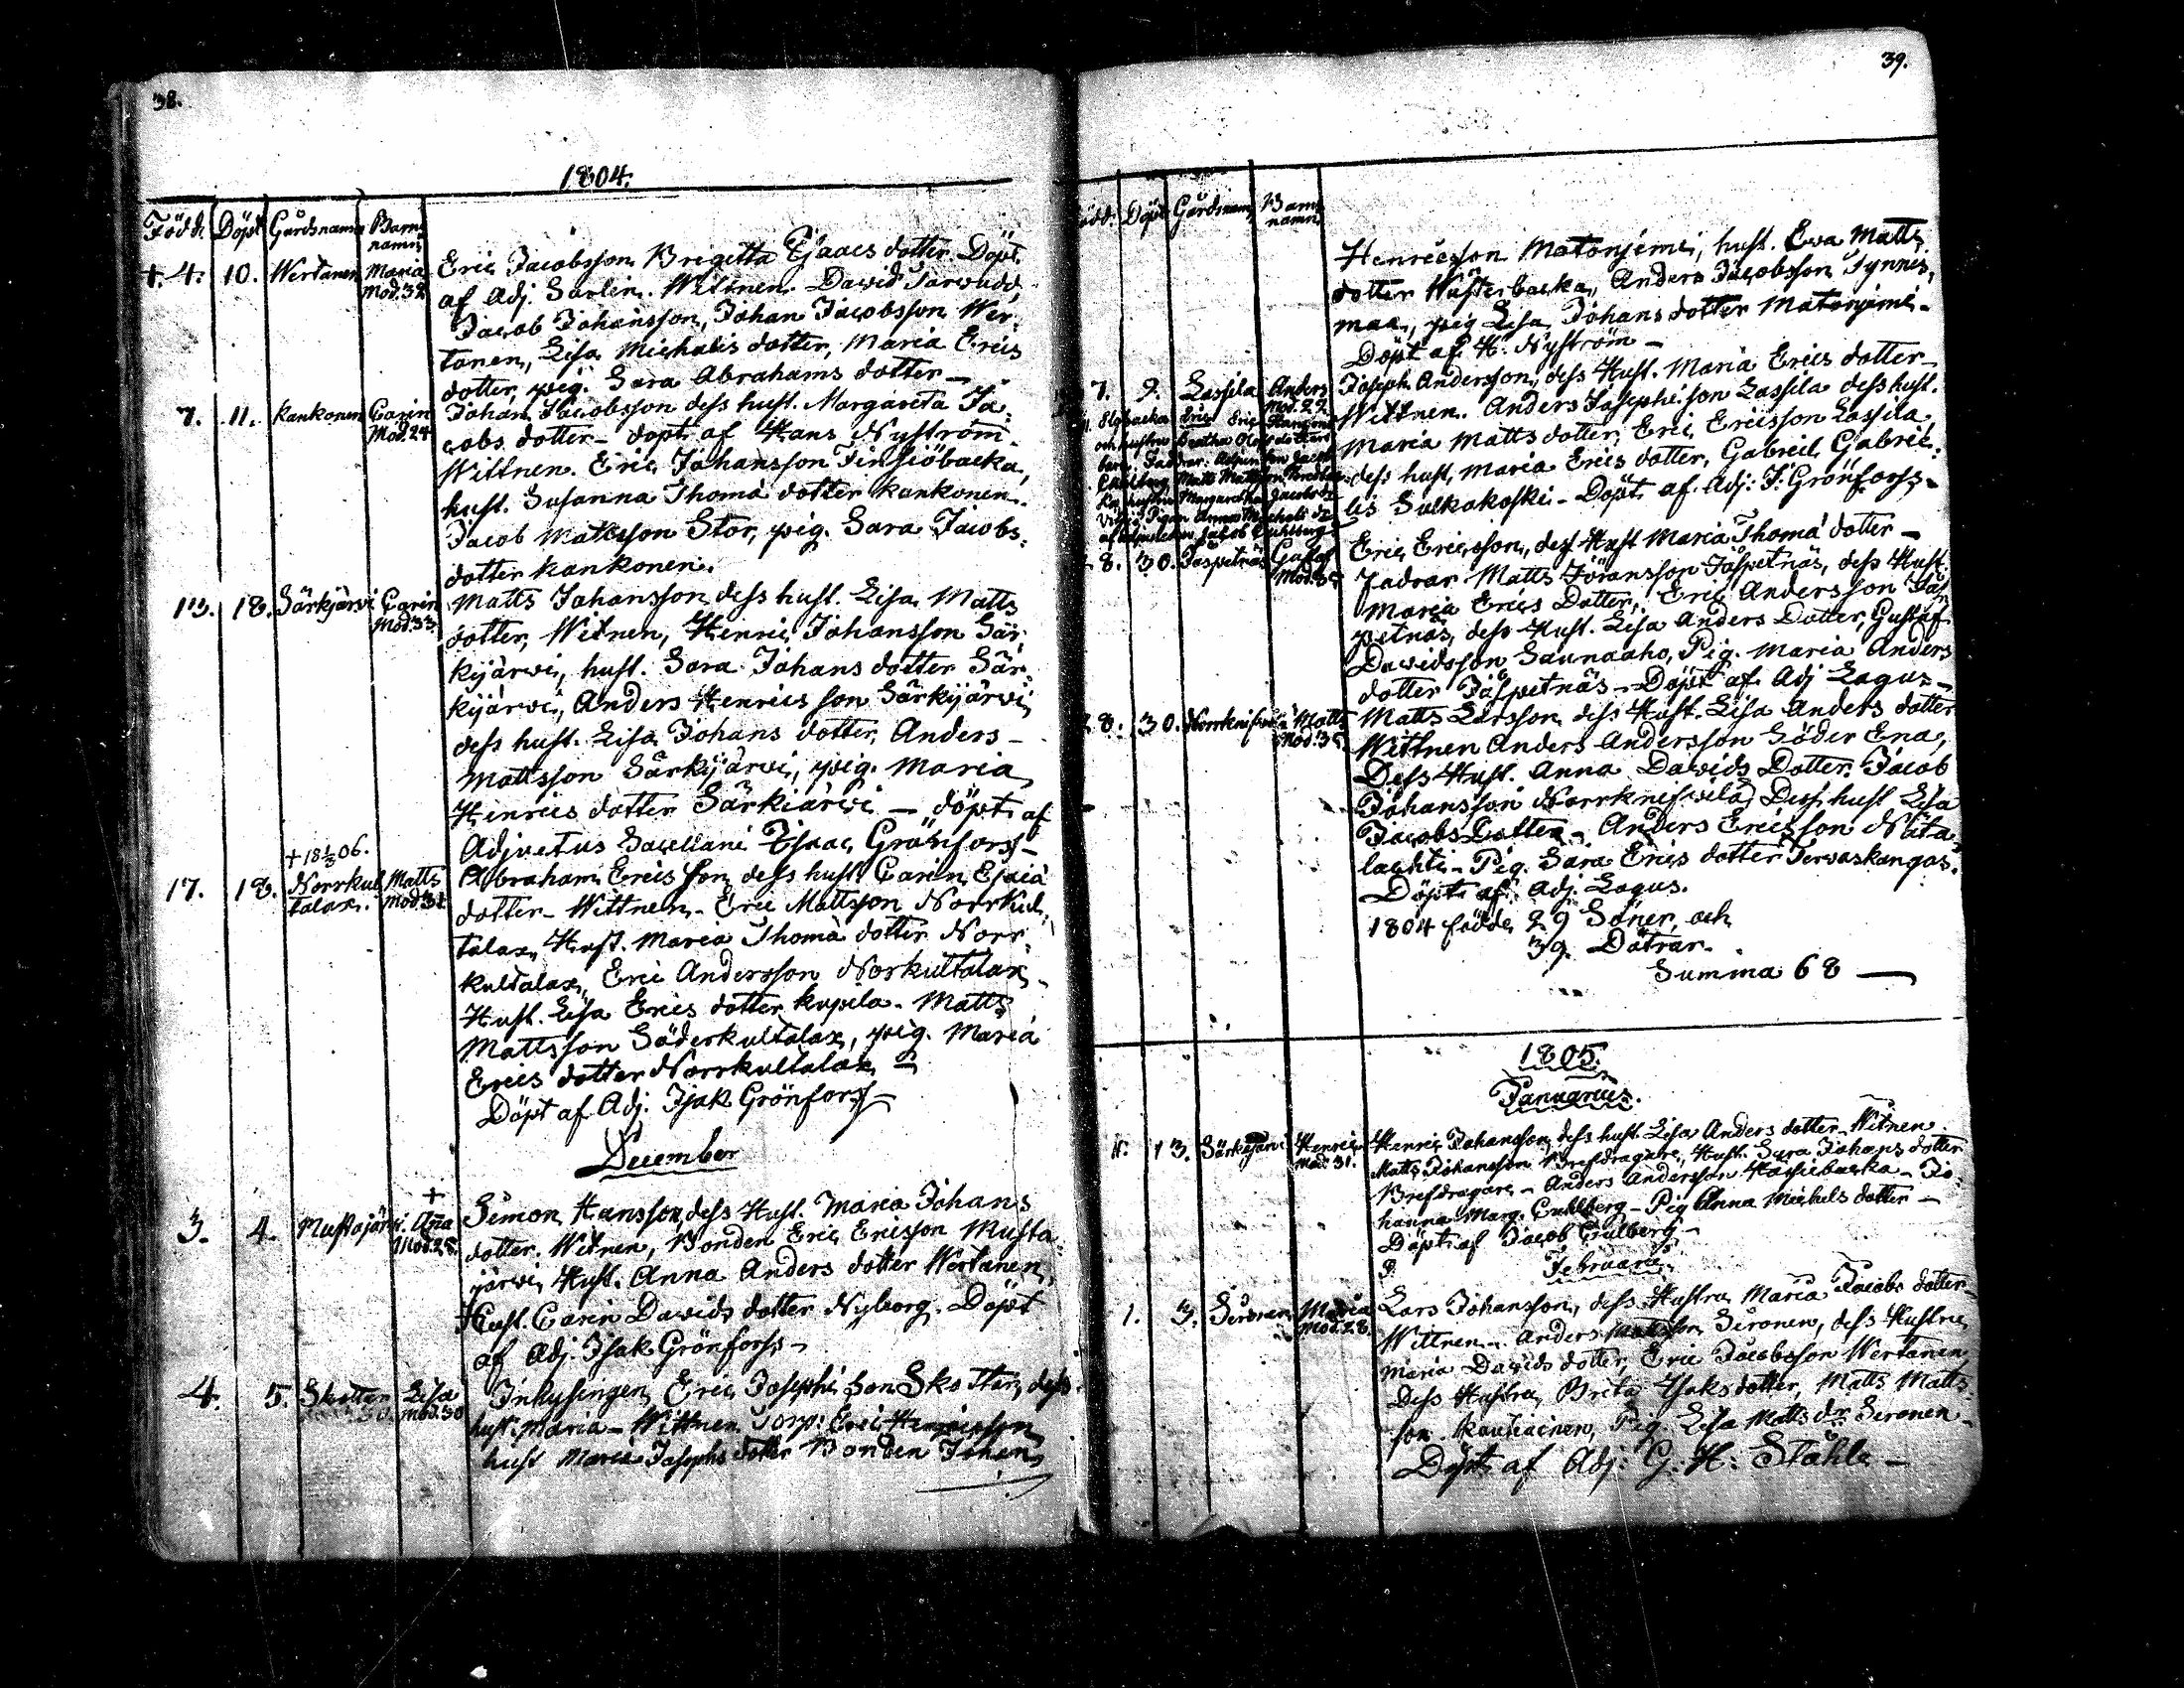 38.
1804.
Född. Döpt Gårdsnamn Barns namn
†. 4. 10. Wertanen Maria Mod. 32
Eric Jacobsson Brigetta Esaacs dotter Döpt
af Adj. Sarlin. Witnen. David
Jacob Johansson, Johan Jacobsson Wer:
tanen, Lisa Michaels dotter, Maria Erics
dotter, pig. Sara Abrahams dotter –
7. 11. Kankonen Carin Mod. 24
Johan Jacobsson dess hust. Margareta Ja:
cobs dotter – döpt af Hans Nyström.
Wittnen. Eric Johansson
hust. Susanna Thomä dotter Kankonen.
Jacob Mattsson Stor, pig. Sara Jacobs:
dotter Kankonen.
13. 18. Särkjärvi Carin Mod. 33
Matts Johansson dess hust. Lisa Matts
dotter, Witnen, Henric Johansson Sär:
kijärvi, hust. Sara Johans dotter Sär:
kijärvi, Anders Henricsson Särkijärvi
dess hust. Lisa Johans dotter, Anders –
Mattsson Särkijärvi, pig. Maria
Henrics dotter Särkiärvi – döpt af
Adjuctus Isaac Grönfors –
† 18 1/3 06.
17. 18. Norrkul talax. Matts Mod. 32
Abraham Ericsson dess hust. Carin Esaiä
dotter – Wittnen – Eric Mattsson Norrkul
talax, Hust. Maria Thomä dotter Norr:
kultalax, Eric Andersson Norkultalax –
Hust. Lisa Erics dotter Kupila. Matts
Mattsson Söderkultalax, pig. Maria
Erics dotter Norrkultalax –
Döpt af Adj. Isak Grönfors –
December
†
3. 4. Mustajärvi. Aña Mod. 28
Simon Hansson, dess Hust. Maria Johans
dotter. Witnen, Bonden Eric Ericsson Musta:
järvi, Hust. Anna Anders dotter Wertanen,
Hust. Carin Davids dotter Nyborg. Döpt
af Adj. Isak Grönfors –
4. 5. Skotten Lisa Mod. 30
Inhysingen Eric Josephi son Skotten, dess
hust. Maria – Wittnen Torp: Eric Henricsson
hust Maria Josephs dotter Bonden Johan
39.
Född. Döpt Gårdsnamn Barns namn
Henricsson Matonjemi, hust. Eva Matts
dotter Wästerbacka, Anders Jacobsson Tynnis
maa, pig Lisa Johans dotter Matonjemi –
Döpt af H. Nyström –
7. 9. Lassila Anders Mod. 29
Joseph Andersson, dess Hust. Maria Erics dotter –
Wittnen. Anders Josephi son Lassila dess hust.
Maria Matts dotter, Eric Ericsson Lassila
dess hust, Maria Erics dotter, Gabriel Gabrie:
lis Sulkakoski – Döpt af Adj: J: Grönforss –
Slotbacka Eric Eric
och hustru Beatha Olofs dotters
barn. Faddrar. Adjuncten Jacob
Cuhlberg, Matts Mattsson
hustru Margaretha Jacobs dr
Pigan Anna Michels dr
af Adjuncten Jacob Cuhlberg
28. 30. Jäspetnäs Gustaf Mod. 35
Eric Ericsson, dess Hust Maria Thomä dotter –
Fadrar Matts Jöransson Jäspetnäs, dess Hust.
Maria Erics Dotter, Eric Andersson Jäs
petnäs, dess Hust. Lisa Anders Dotter, Gustaf
Davidsson Saunaaho, Pig. Maria Anders
dotter Jäspetnäs – Döpt af Adj Lagus –
28. 30. Matts Mod. 35
Matts Larsson dess Hust. Lisa Anders dotter
Wittnen Anders Andersson Söder Ena,
Dess Hust. Anna Davids Dotter. Jacob
Johansson Dess hust Lisa
Jacobs Dotter – Anders Ericsson Näta
lachti – Pig. Sara Erics dotter Tervaskangas.
Döpt af Adj. Lagus.
1804 födde 29 Söner, och
39. Dötrar.
Summa 68 –
1805.
Januarius.
11. 13. Särkijärvi Henric Mod. 31.
Henric Johansson, dess hust. Lisa Anders dotter – Witnen.
Matts Johansson Brefdragare, Hust. Sara Johans dotter
Brefdragare – Anders Andersson Hassiebacka – Jo:
hanna Marg. Cuhlberg – Pig Anna Michels dotter –
Döpt af Jacob Culberg –
Februarii.
1. 3. Seronen Maria Mod. 28.
Lars Johansson, dess Hustru Maria Jacobs dotter –
Wittnen – Anders Mattsson Seronen, dess Hustru
Maria Davids dotter, Eric Jacobsson Wertanen
Dess Hustru Brita Isaks dotter, Matts Matts
son Kautiainen, Pig. Lisa Matts dr Seronen –
Döpt af Adj: G: H: Ståhle –